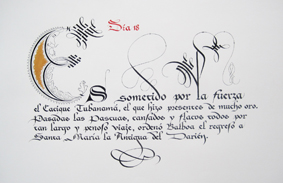 Día 18
Es sometido por la fuerza
el Cacique Tubanamá, el que hizo presentes de mucho oro.
Pasadas las Pascuas, cansados y flacos todos por
tan largo y penoso viaje, ordenó Balboa el regreso a
Santa María la Antigua del Darién.